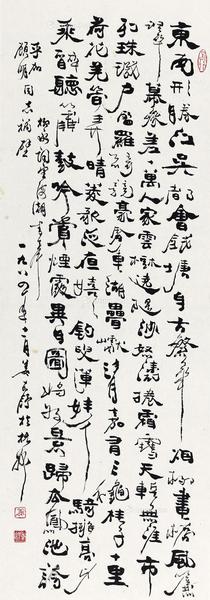 東南形勝江吳都會錢塘自古繁華煙柳畫橋風簾
翠幕參差十萬人家雲樹繞堤沙怒濤捲霜雪天塹無涯市
列珠璣戶盈羅綺競豪奢重湖疊巘清嘉有三秋桂子十里
荷花羌管弄晴菱歌泛夜嬉嬉釣叟蓮娃千騎擁高牙
乘醉聽簫鼓吟賞煙霞異日圖將好景歸去鳳池誇
柳永詞望海潮
顧明同志補壁
一九八四年十二月姜東舒於杭州